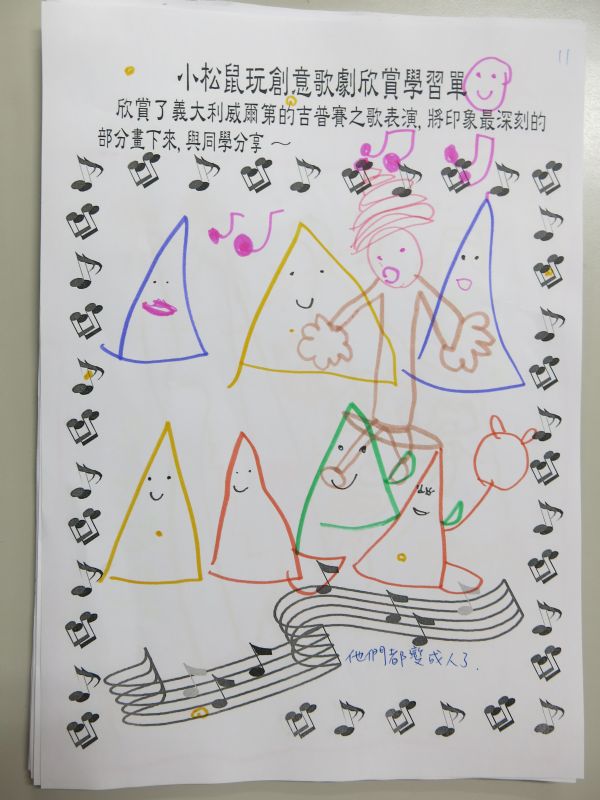 11
小松鼠玩創意歌劇欣賞學習單
欣賞了義大利威爾第的吉普賽之歌表演, 將印象最深刻的
部分畫下來, 與同學分享～
他們都變成人了.